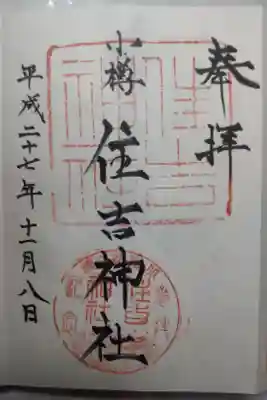 奉拝
小樽
住吉神社
平成二十七年十一月八日